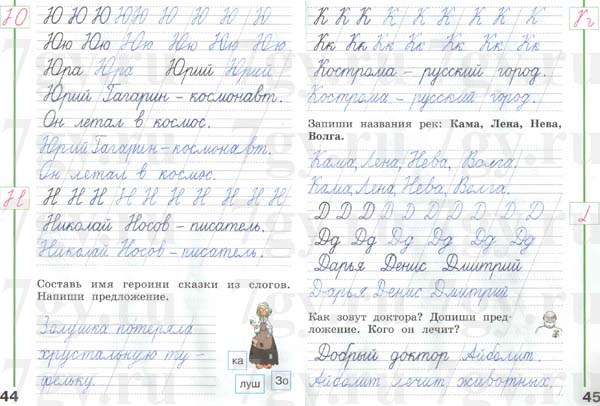 Ю
Ю Ю Ю Ю Ю Ю Ю Ю Ю
Юю Юю Юю Юю Юю Юю
Юра Юра Юрий Юрий
Юрий Гагарин – космонавт.
Он летал в космос.
Юрий Гагарин – космонавт.
Он летал в космос.
Н
Н Н Н Н Н Н Н Н Н Н
Николай Носов – писатель.
Николай Носов – писатель.
Составь имя героини сказки из слогов.
Напиши предложение.
Золушка потеряла
хрустальную ту –
фельку.
ка
луш
Зо
44
К К К К К К К К К
Кк Кк Кк Кк Кк Кк Кк
Кострома – русский город.
Кострома – русский город.
Запиши названия рек: Кама, Лена, Нева,
Волга.
Кама, Лена, Нева, Волга.
Кама, Лена, Нева, Волга.
Д Д Д Д Д Д Д Д Д Д
Дд Дд Дд Дд Дд Дд
Дарья Денис Дмитрий
Дарья Денис Дмитрий
Как зовут доктора? Допиши пред-
ложение. Кого он лечит?
Добрый доктор Айболит.
Айболит лечит животных.
45
7gy.ru